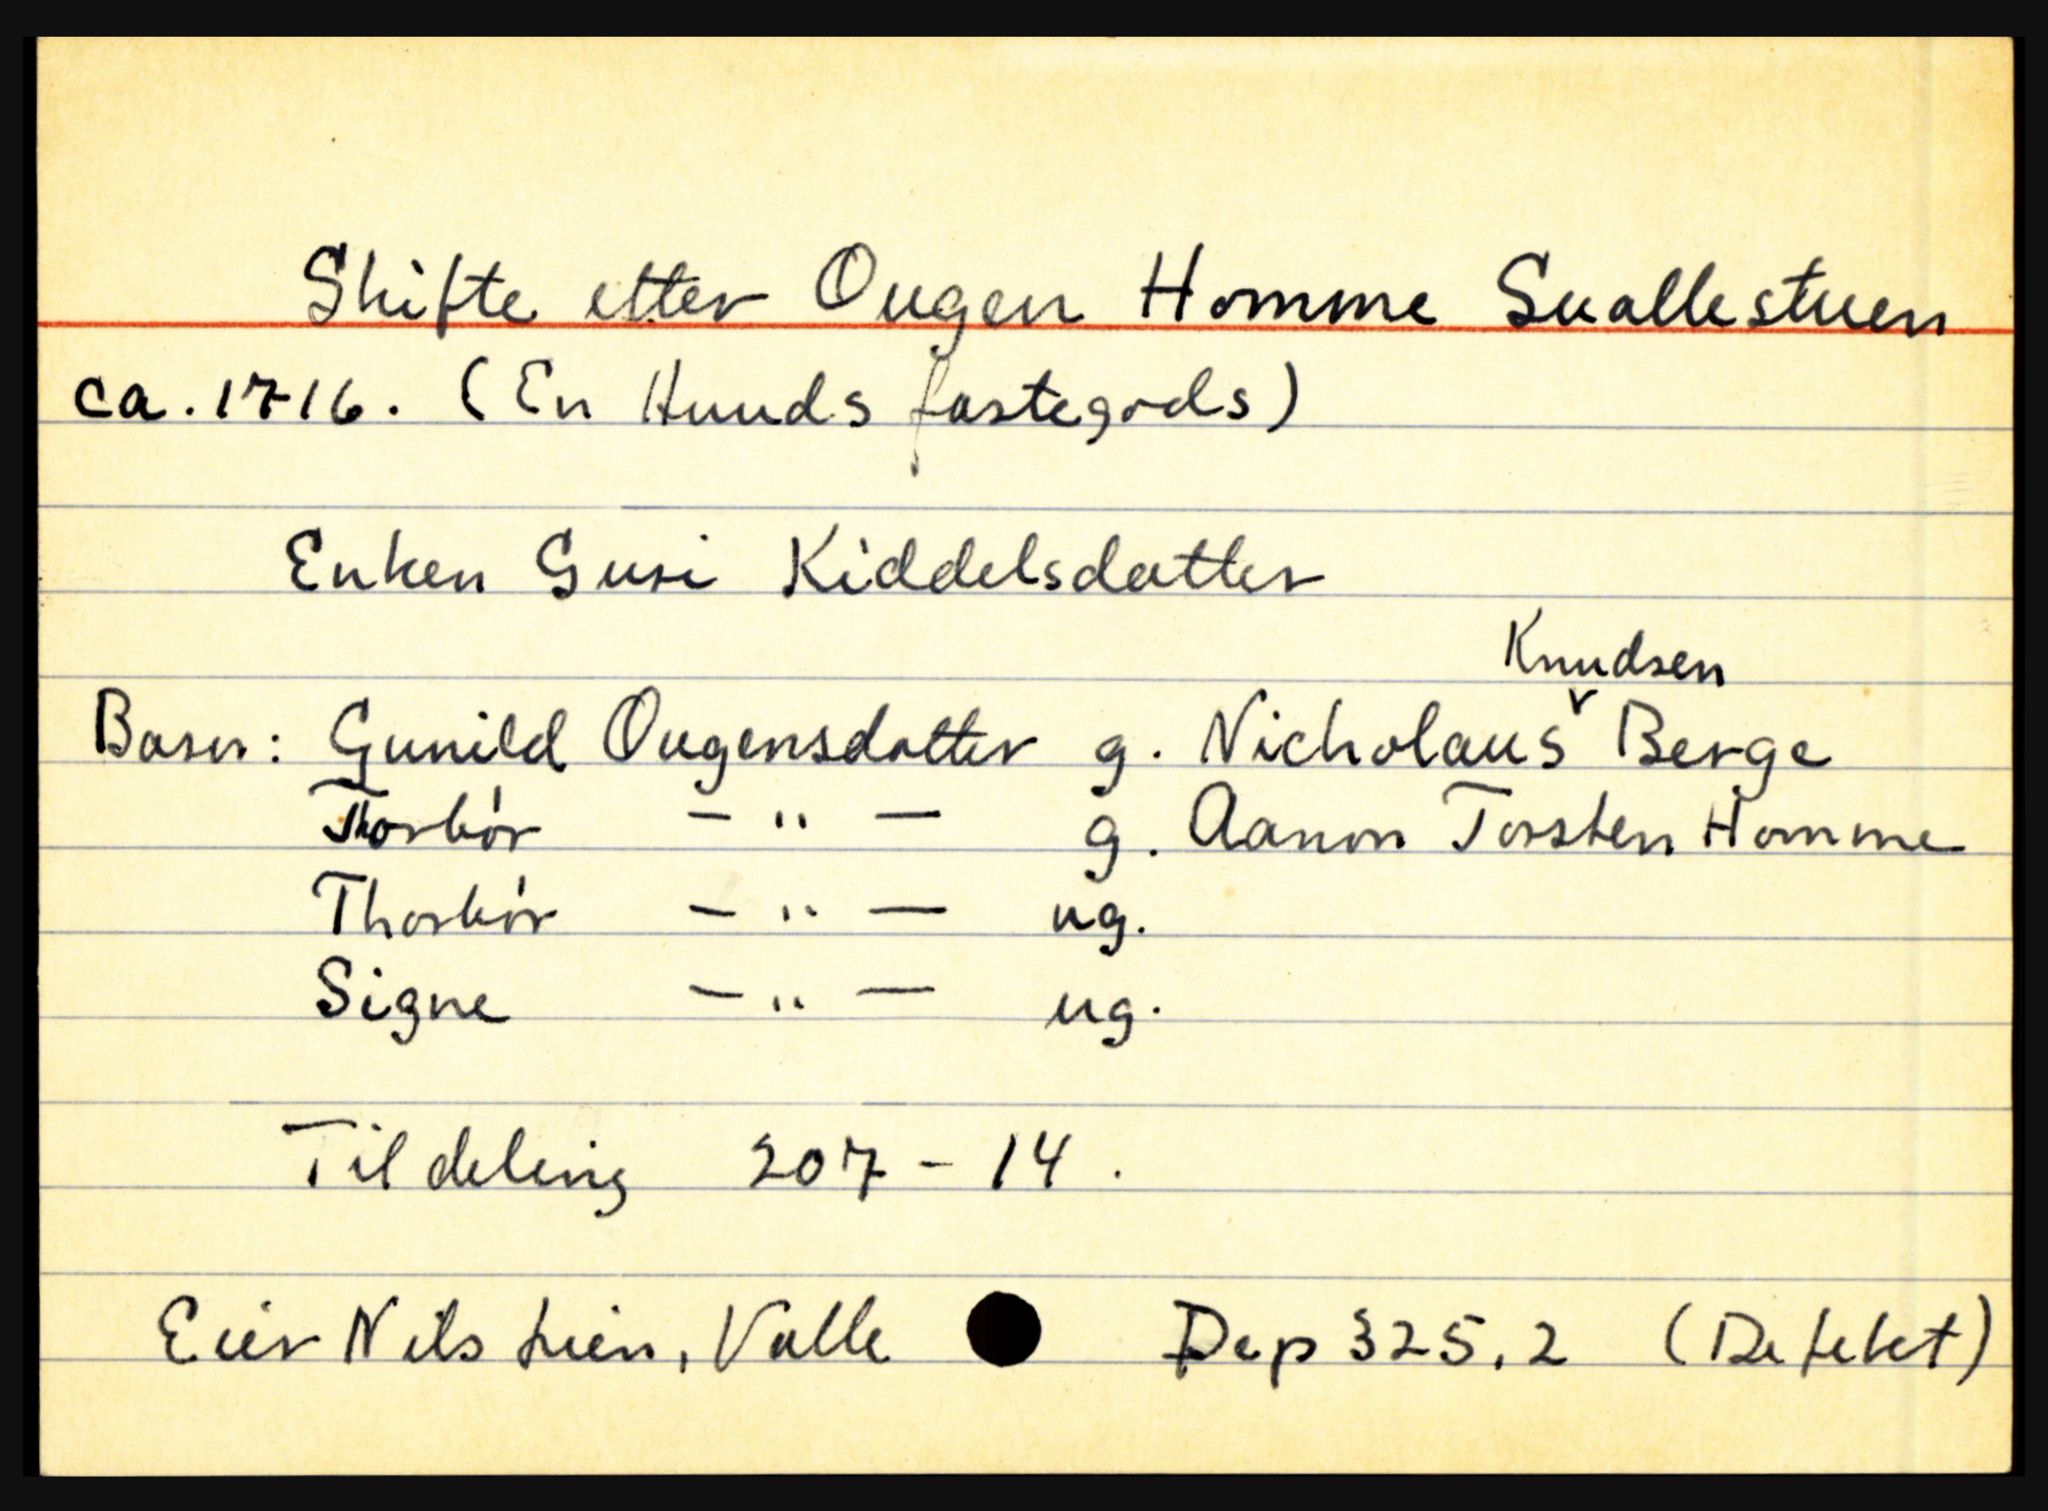 Skifte etter Ougen Homme Suallestuen
ca. 1716. (En Huuds fastegods)
Enken Guri Kiddelsdatter
Knudsen
Barn: Gunild Ougensdatter g. Nicholaus Berge
Thorbør - " - g. Aanon Torsten Homme
Thorbør - " - ug.
Signe - " - ug.
Til deling 207 - 14.
Eier Nils Lien, Valle Dep 325.2 (Defekt)